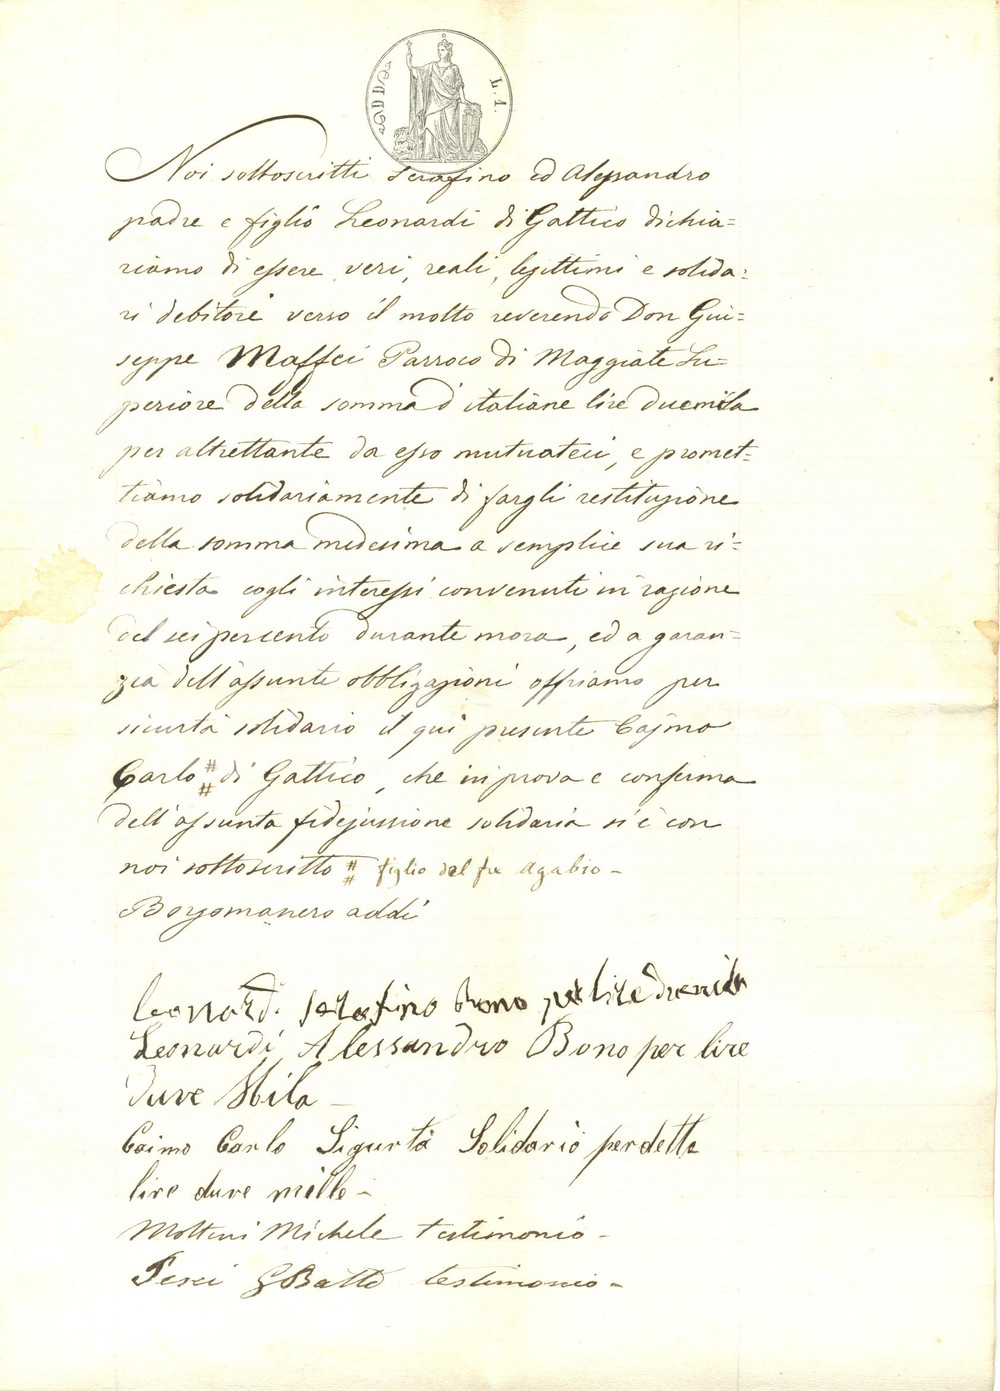 L. 1.
Noi sottoscritti Serafino ed Alessandro
padre e figlio Leonardi di Gattico dichia=
riamo di essere veri, reali, legittimi e solida=
ri debitori verso il molto reverendo Don Giu=
seppe Maffei Parroco di Maggiate Su=
periore della somma d'italiane lire duemila
per altrettante da esso mutuateci, e promet=
tiamo solidariamente di fargli restituzione
della somma medesima a semplice sua ri=
chiesta cogli interessi convenuti in ragione
del sei per cento durante mora, ed a garan=
zia dell'assunte obbligazioni offriamo per
sicurtà solidario il qui presente Cajmo
Carlo # di Gattico, che in prova e conferma
dell'assunta fidejussione solidaria si è con
noi sottoscritto # figlio del fu Agabio -
Borgomanero addì
Leonardi Serafino Buono per lire duemila
Leonardi Alessandro Bono per lire
duve Mila -
Caimo Carlo Sigurtà Solidario per dette
lire duve mille -
Mottini Michele testimonio -
Pesci GBatta testimonio -